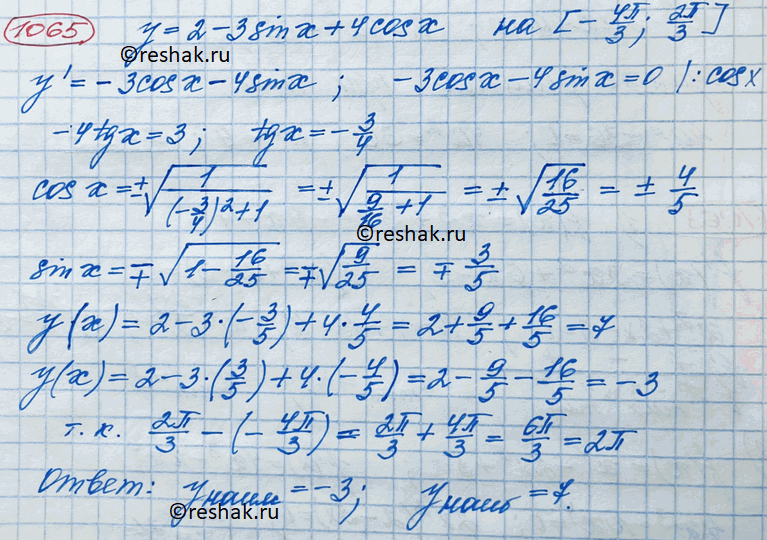 1065 y = 2 - 3 sin x + 4 cos x на [-4π/3; 2π/3]
©reshak.ru
y' = -3cos x - 4 sin x ; -3cos x - 4 sin x = 0 |: cos x
-4tg x = 3 ; tg x = -3/4
cos x = ±√(1/((-3/4)²+1)) = ±√(1/(9/16+1)) = ±√(16/25) = ± 4/5
©reshak.ru
sin x = ∓√(1 - 16/25) = ∓√(9/25) = ∓ 3/5
y(x) = 2 - 3·(-3/5) + 4·4/5 = 2 + 9/5 + 16/5 = 7
y(x) = 2 - 3·(3/5) + 4·(-4/5) = 2 - 9/5 - 16/5 = -3
т.к. 2π/3 - (-4π/3) = 2π/3 + 4π/3 = 6π/3 = 2π
Ответ: yнаим = -3; yнаиб = 7.
©reshak.ru